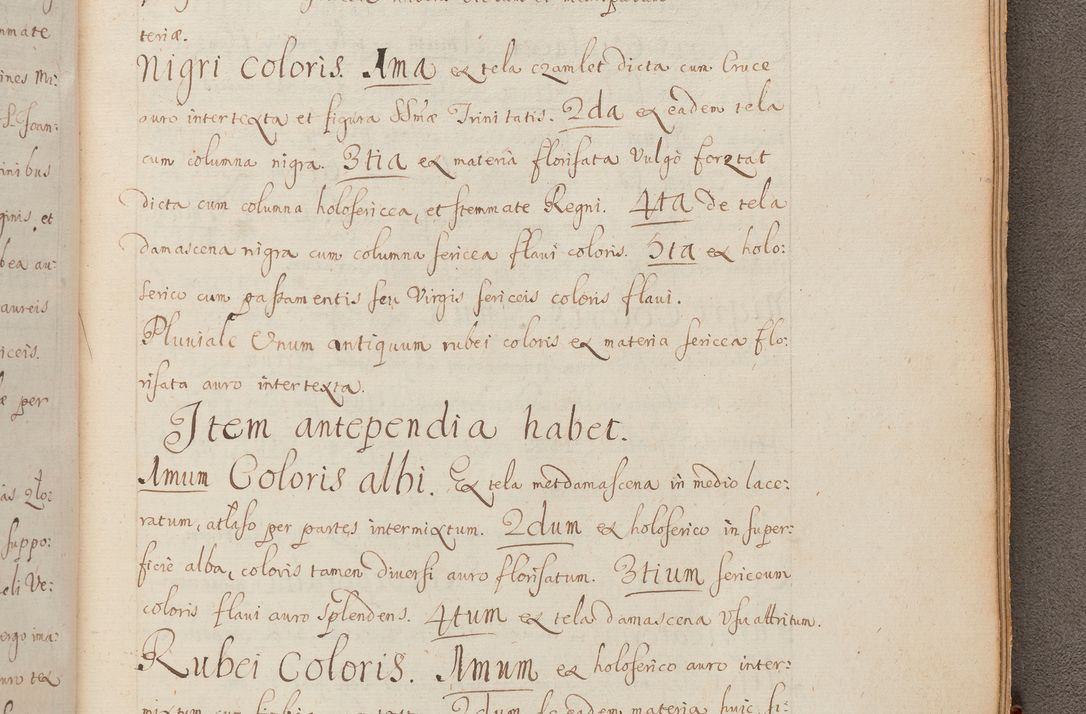 teriæ.
Nigri Coloris. 1ma ex tela czamlet dicta cum Cruce
auro intertexta et figura SSmæ Trinitatis. 2da ex eadem tela
cum columna nigra. 3tia ex materia florisata Vulgò forztat
dicta cum columna holosericea, et stemmate Regni. 4ta de tela
damascena nigra cum columna sericea flavi coloris. 5ta ex holo:
serico cum passamentis seu Virgis sericeis coloris flavi.
Pluviale Unum antiquum rubei coloris ex materia sericea flo:
risata auro intertexta.
Item antependia habet.
1mum Coloris albi. Ex tela metdamascena in medio lace:
ratum, atlaso per partes intermixtum. 2dum ex holoserico in super:
ficie alba, coloris tamen diversi auro florisatum. 3tium sericeum
coloris flavi auro splendens. 4tum ex tela damascena Usu attritum.
Rubei Coloris. 1mum ex holoserico auro inter:
mixtum
nmate
ines Mi:
S. Joan:
inibus
ginis, et
bea au:
aureis
iceis.
per
suppo:
eli Ve:
ergo ima:
uro tex